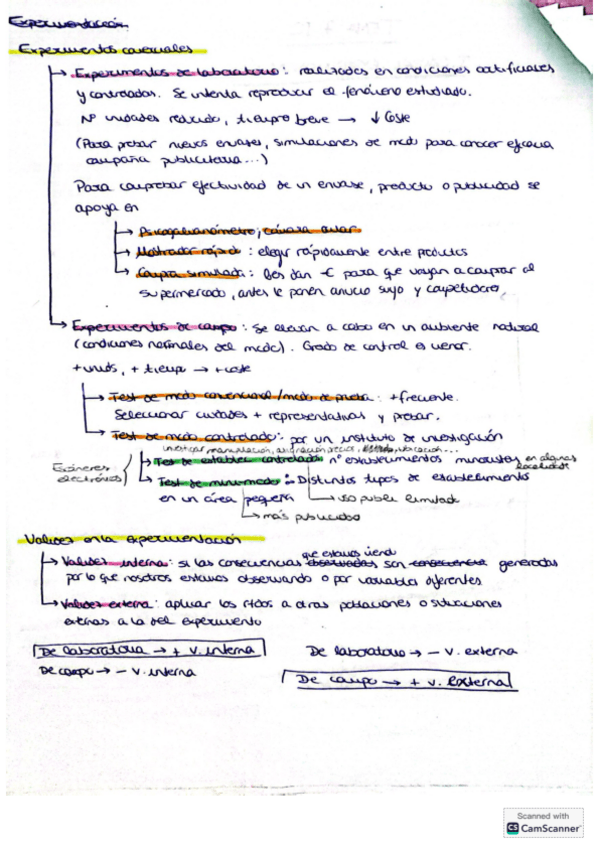 Experimentación
Experimentos comerciales
Experimentos de laboratorio: realizados en condiciones artificiales
y controladas. Se intenta reproducir el fenómeno estudiado.
Nº unidades reducido, tiempo breve → ↓ Coste
(Para probar nuevos envases, simulaciones de mcdo para conocer eficacia
campaña publicitaria...)
Para comprobar efectividad de un envase, producto o publicidad se
apoya en
Psicogalvanómetro; cámara ocular
Mostrador rápido: elegir rápidamente entre productos
Compra simulada: les dan € para que vayan a comprar al
supermercado, antes le ponen anuncio suyo y competidora.
Experimentos de campo: Se llevan a cabo en un ambiente natural
(condiciones normales del mcdo). Grado de control es menor.
+ unids, + tiempo → + coste
Test de mcdo convencional/mcdo de prueba: + frecuente.
Seleccionar ciudades + representativas y probar.
Test de mcdo controlado: por un instituto de investigación
investigar manipulación, asignación precios, ubicación...
Test de establec controlado: nº establecimientos minoristas en algunas
localidades
Escáneres
electrónicos
Test de minimcdo: Distintos tipos de establecimiento
en un área pequeña
→ su public limitada
→ más publicidad
Validez en la experimentación
Validez interna: si las consecuencias observadas que estamos viendo son consecuencia generadas
por lo que nosotros estamos observando o por variables diferentes
Validez externa: aplicar los rtdos a otras poblaciones o situaciones
externas a la del experimento
De laboratorio → + v. interna
De laboratorio → − v. externa
De campo → − v. interna
De campo → + v. externa
Scanned with
CS CamScanner